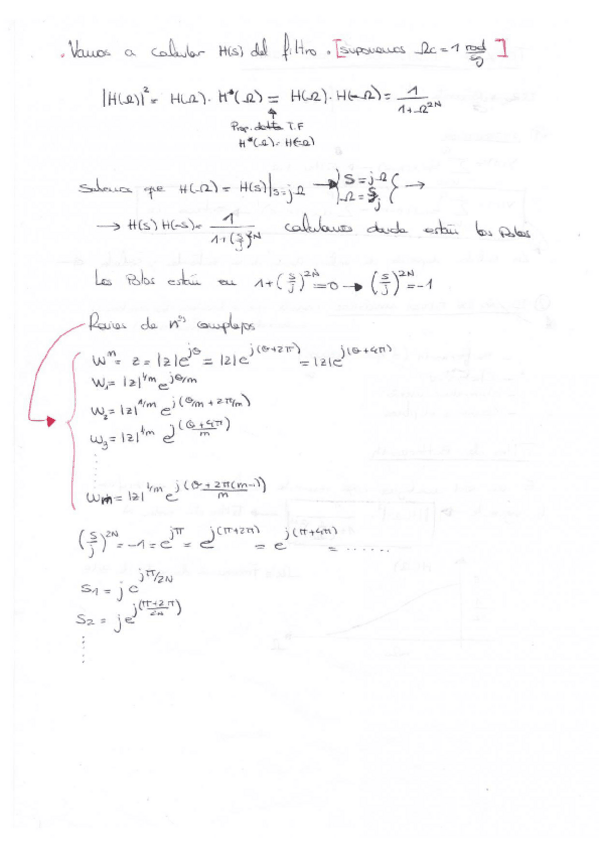 . Vamos a calcular H(s) del filtro. [suponemos Ωc = 1 rad/s]
|H(Ω)|² = H(Ω) · H*(Ω) = H(Ω) · H(-Ω) = 1/(1+Ω^2N)
Prop. T.F
H*(Ω) = H(-Ω)
que H(Ω) = H(s)|s=jΩ → { s = jΩ } →
Ω = s/j
→ H(s) H(-s) = 1/(1+(s/j)^2N) calculamos donde están los Polos
Los Polos están en 1+(s/j)^2N = 0 → (s/j)^2N = -1
Raíces de nºs complejos
w^n = z = |z|e^jθ = |z|e^j(θ+2π) = |z|e^j(θ+4π)
w₁ = |z|^1/m e^jθ/m
w₂ = |z|^1/m e^j(θ/m + 2π/m)
w₃ = |z|^1/m e^j((θ+4π)/m)
wm = |z|^1/m e^j((θ+2π(m-1))/m)
(s/j)^2N = -1 = e^jπ = e^j(π+2π) = e^j(π+4π) = ......
s₁ = j e^jπ/2N
s₂ = j e^j((π+2π)/2N)